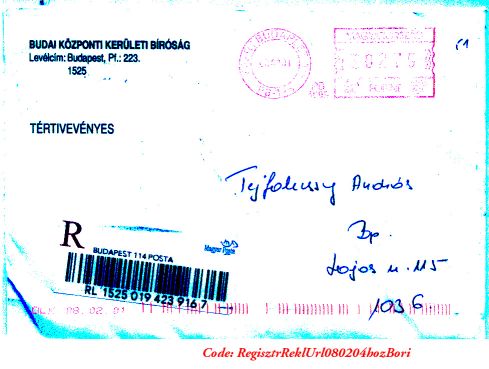 BUDAI KÖZPONTI KERÜLETI BÍRÓSÁG
Levélcím: Budapest, Pf.: 223.
1525
TÉRTIVEVÉNYES
Tejfalussy András
Bp.
Lajos u. 115
1036
R
BUDAPEST 114 POSTA
Magyar Posta
RL 1525 019 423 916 7
Code: RegisztrReklUrl080204hozBori